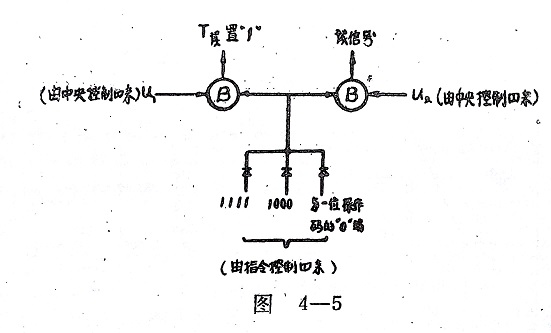 T误置"1" 读信号
(由中央控制四来)U₁ B B U₂(由中央控制四来)
1111 1000 多一位操作
码的"0"端
(由指令控制四来)
图 4—5